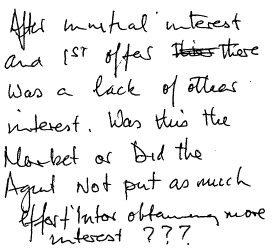 After innitial interest
and 1ST offer there
was a lack of other
interest. Was this the
Market or Did the
Agent Not put as much
Effort into obtaining more
interest ???